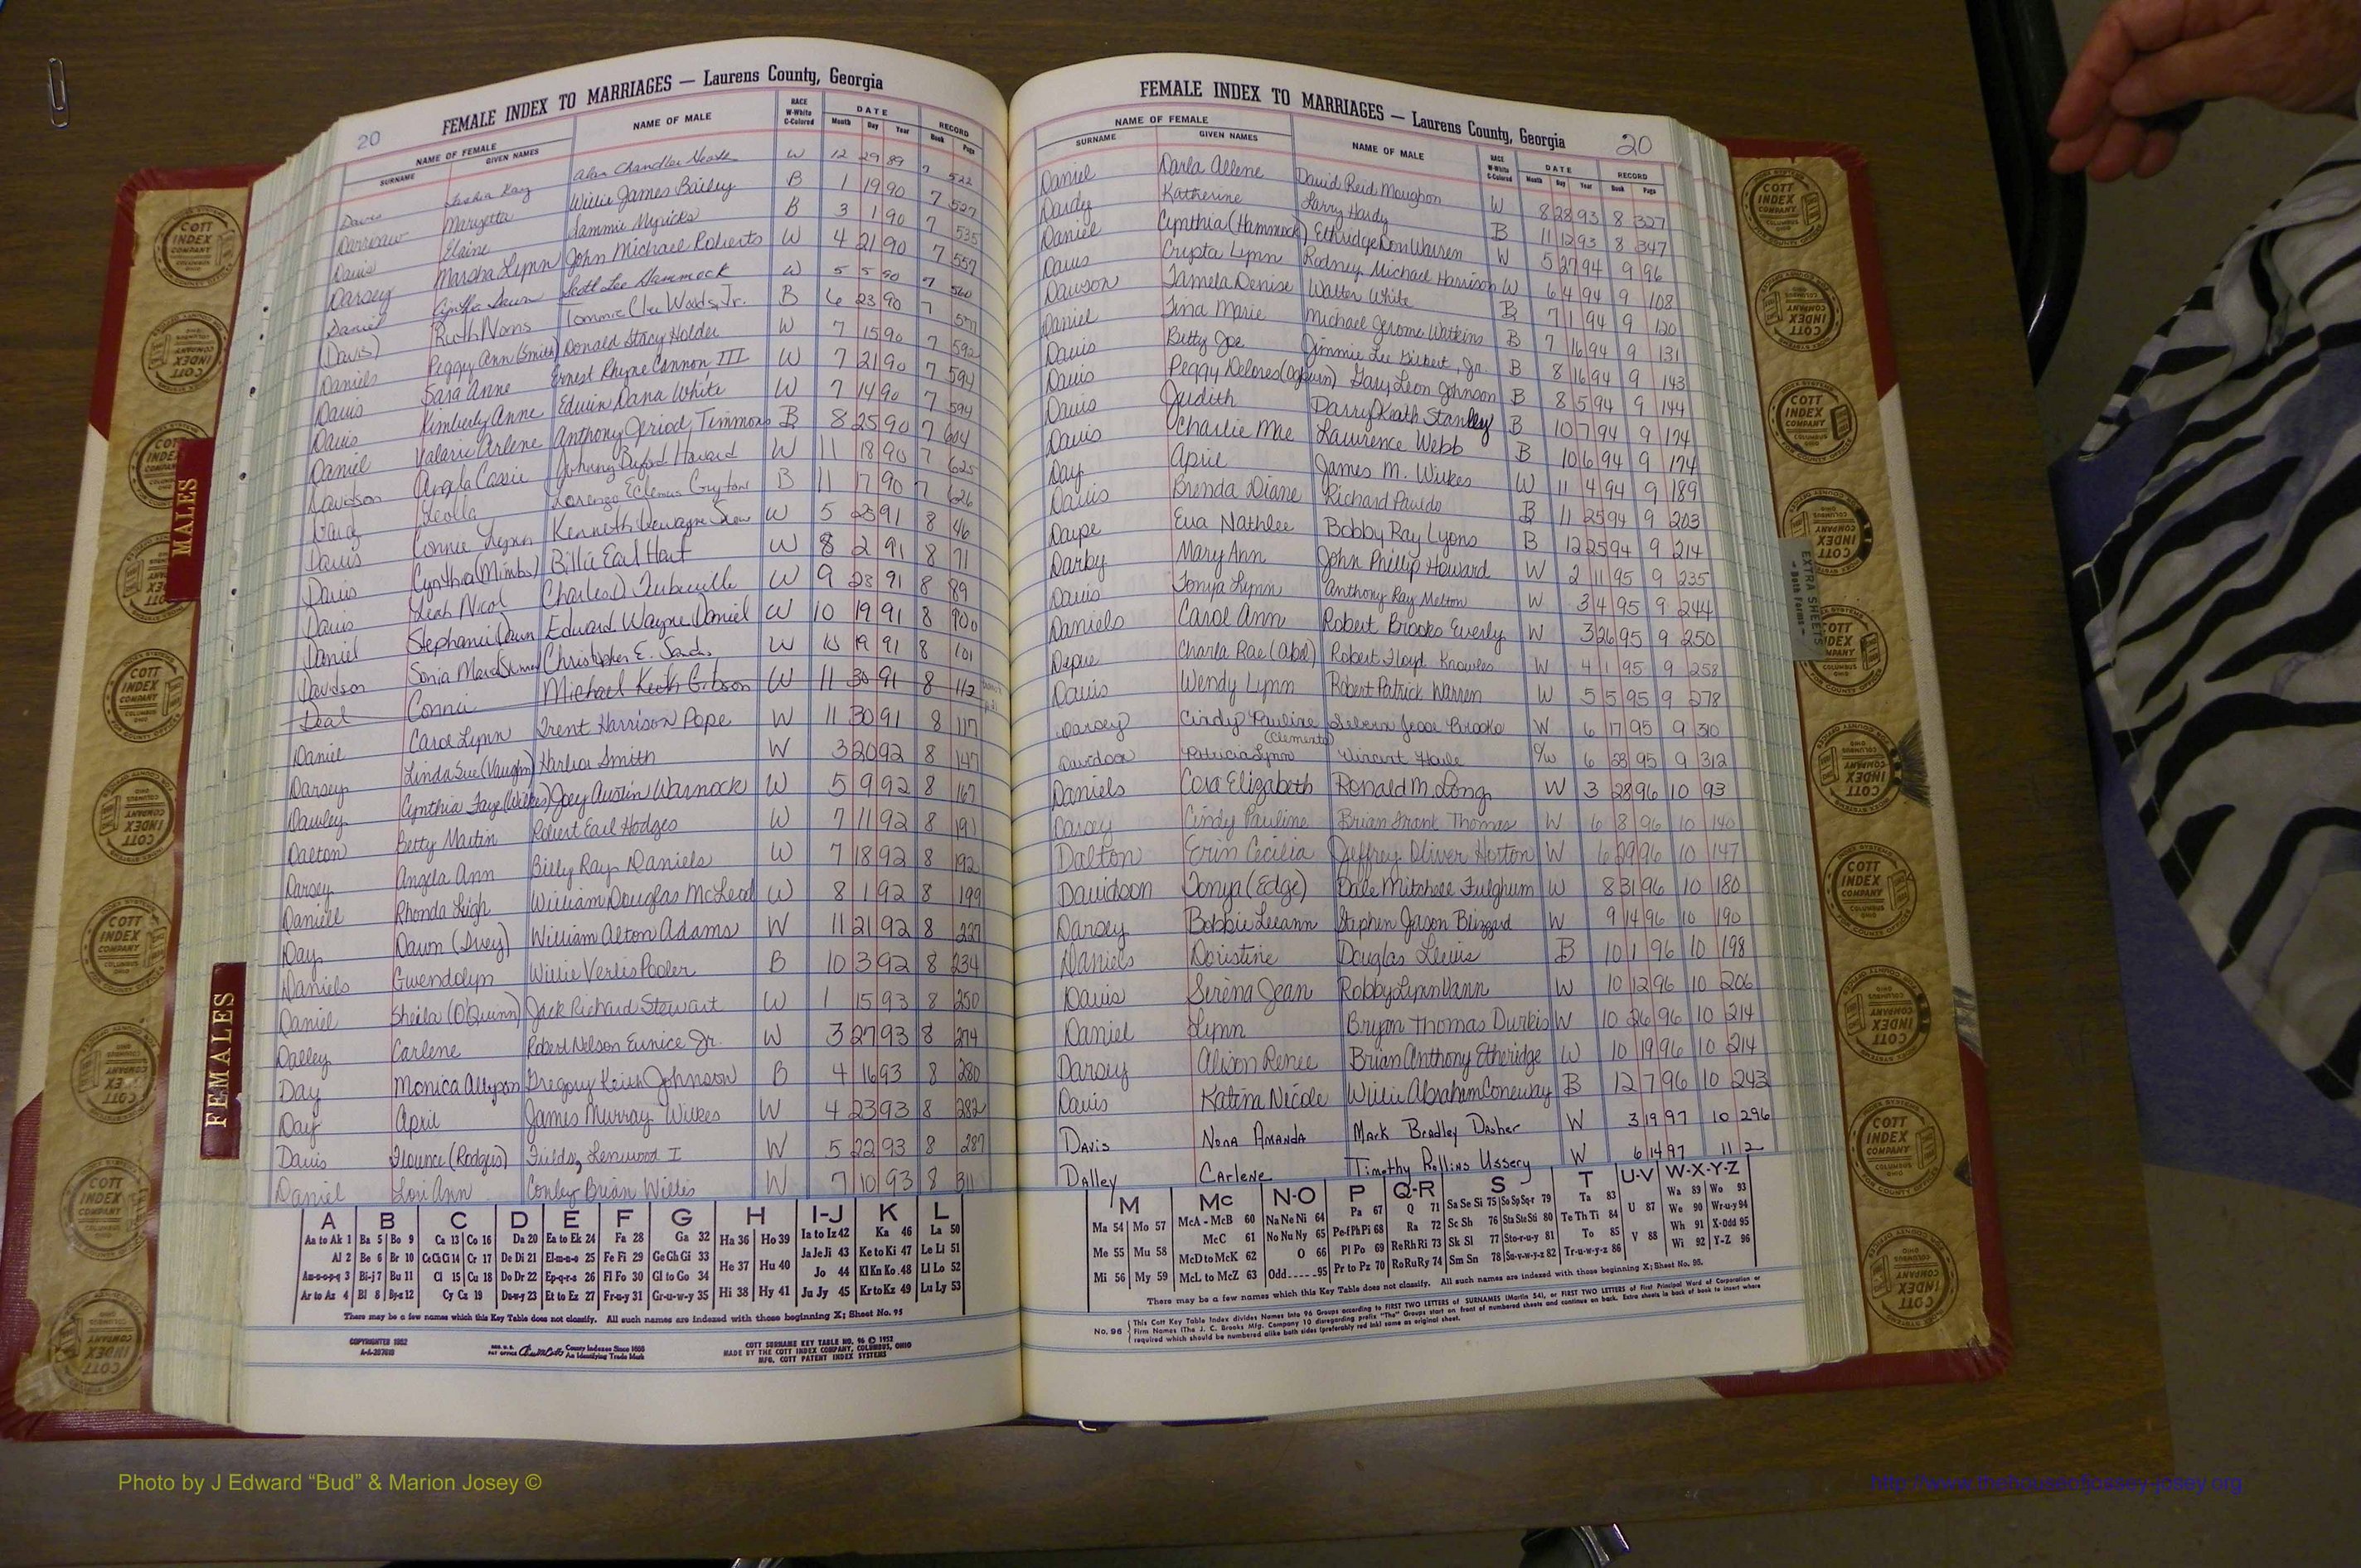 20
FEMALE INDEX TO MARRIAGES — Laurens County, Georgia
NAME OF FEMALE NAME OF MALE RACE W-White C-Colored DATE RECORD
SURNAME GIVEN NAMES Month Day Year Book Page
Davis Kay Alan Chandler Heath W 12 29 89 7 522
Margetta Willie James Bailey B 1 19 90 7 527
Davis Elaine Sammie Myricks B 3 1 90 7 535
Darsey Marsha Lynn John Michael Roberts W 4 21 90 7 557
Daniel Cynthia Dawn Scott Lee Hammock W 5 5 90 7 560
(Davis) Ruth Noms Tommie Clee Woods, Jr. B 6 23 90 7 577
Daniels Peggy Ann (Smith) Donald Stacy Holder W 7 15 90 7 592
Davis Sara Anne Ernest Rhyne Cannon III W 7 21 90 7 594
Davis Kimberly Anne Edwin Dana White W 7 14 90 7 594
Daniel Valarie Arlene Anthony Jeriod Timmons B 8 25 90 7 604
Davidson Angela Cassie Johnny Buford Howard W 11 18 90 7 625
Leolla Lorenzo Guyton B 11 17 90 7 626
Davis Connie Lynn Kenneth Dewayne W 5 23 91 8 46
Davis Cynthia (Mimbs) Billie Earl Hout W 8 2 91 8 71
Davis Leah Nicol Charles D Tuberville W 9 23 91 8 89
Daniel Stephanie Dawn Edward Wayne Daniel W 10 19 91 8 900
Davidson Sonja Christopher E. Sands W 10 19 91 8 101
Deal Connie Michael Keith Gibson W 11 30 91 8 112
Daniel Carol Lynn Trent Harrison Pope W 11 30 91 8 117
Darsey Linda Sue (Vaughn) Harlice Smith W 3 20 92 8 147
Dawley Cynthia Faye (Wilkes) Joey Austin Warnock W 5 9 92 8 167
Dalton Betty Martin Robert Earl Hodges W 7 11 92 8 191
Darsey Angela Ann Billy Ray Daniels W 7 18 92 8 192
Daniell Rhonda Leigh William Douglas McLeod W 8 1 92 8 199
Day Dawn (Ivey) William Alton Adams W 11 21 92 8 227
Daniels Gwendolyn Willie Verlis Pooler B 10 3 92 8 234
Daniel Sheila (O'Quinn) Jack Richard Stewart W 1 15 93 8 250
Dalley Carlene Robert Nelson Eunice Jr. W 3 27 93 8 274
Day Monica Allyson Gregory Keith Johnson B 4 16 93 8 280
Day April James Murray Wilkes W 4 23 93 8 282
Davis Florence (Rodgers) Fields, Lenwood I W 5 22 93 8 287
Daniel Lori Ann Conley Brian Willis W 7 10 93 8 311
A B C D E F G H I-J K L
Aa to Ak 1 Ba 5 Bo 9 Ca 13 Co 16 Da 20 Ea to Ek 24 Fa 28 Ga 32 Ha 36 Ho 39 Ia to Iz 42 Ka 46 La 50
Al 2 Be 6 Br 10 Ce Ch Ci 14 Cr 17 De Di 21 El-m-n-o 25 Fe Fi 29 Ge Gh Gi 33 Ja Je Ji 43 Ke to Ki 47 Le Li 51
Am-n-o-p-q 3 Bi-j 7 Bu 11 Cl 15 Cu 18 Do Dr 22 Ep-q-r-s 26 Fl Fo 30 Gl to Go 34 He 37 Hu 40 Jo 44 Kl Kn Ko 48 Ll Lo 52
Ar to Az 4 Bl 8 By-z 12 Cy Cz 19 Du-w-y 23 Et to Ez 27 Fr-u-y 31 Gr-u-w-y 35 Hi 38 Hy 41 Ju Jy 45 Kr to Kz 49 Lu Ly 53
There may be a few names which this Key Table does not classify. All such names are indexed with those beginning X; Sheet No. 95
COTT SURNAME KEY TABLE NO. 96 © 1952
MADE BY THE COTT INDEX COMPANY, COLUMBUS, OHIO
MFG. COTT PATENT INDEX SYSTEMS
County Indexes Since 1888
An Identifying Trade Mark
FEMALE INDEX TO MARRIAGES — Laurens County, Georgia
20
NAME OF FEMALE NAME OF MALE RACE W-White C-Colored DATE RECORD
SURNAME GIVEN NAMES Month Day Year Book Page
Daniel Darla Allene David Reid Moughon W 8 28 93 8 327
Dardy Katherine Larry Hardy B 11 12 93 8 347
Daniel Cynthia (Hammock) Ethridge Don Warren W 5 27 94 9 96
Davis Crypta Lynn Rodney Michael Harrison W 6 4 94 9 108
Dawson Tamela Denise Walter White B 7 1 94 9 120
Daniel Tina Marie Michael Jerome Watkins B 7 16 94 9 131
Davis Betty Joe Jimmie Lee Gilbert, Jr. B 8 16 94 9 143
Davis Peggy Delores (Ogburn) Gary Leon Johnson B 8 5 94 9 144
Davis Judith Darryl Keith Stanley B 10 7 94 9 174
Davis Charlie Mae Lawrence Webb B 10 6 94 9 174
Day April James M. Wilkes W 11 4 94 9 189
Davis Brenda Diane Richard Paulds B 11 25 94 9 203
Dawpe Eva Nathlee Bobby Ray Lyons B 12 25 94 9 214
Darby Mary Ann John Phillip Howard W 2 11 95 9 235
Davis Tonya Lynn Anthony Ray Melton W 3 4 95 9 244
Daniels Carol Ann Robert Brooks Everly W 3 26 95 9 250
Depue Charla Rae (Abel) Robert Floyd Knowles W 4 1 95 9 258
Davis Wendy Lynn Robert Patrick Warren W 5 5 95 9 278
Darsey Cindy Pauline (Clements) Jesse Brooks W 6 17 95 9 310
Davidson Patricia Lynn Vincent Haule O/W 6 23 95 9 312
Daniels Cora Elizabeth Ronald M. Long W 3 28 96 10 93
Darsey Cindy Pauline Brian Grant Thomas W 6 8 96 10 140
Dalton Erin Cecilia Jeffrey Oliver Horton W 6 29 96 10 147
Davidson Tonya (Edge) Dale Mitchell Fulghum W 8 31 96 10 180
Darsey Bobbie Leeann Stephen Jason Blizzard W 9 14 96 10 190
Daniels Doristine Douglas Lewis B 10 1 96 10 198
Davis Serena Jean Robby Lynn Vann W 10 12 96 10 206
Daniel Lynn Bryan Thomas Durkis W 10 26 96 10 214
Darsey Alison Renee Brian Anthony Etheridge W 10 19 96 10 214
Davis Katina Nicole Willie Abraham Coneway B 12 7 96 10 243
Davis Nona Amanda Mark Bradley Dasher W 3 19 97 10 296
Dalley Carlene Timothy Rollins Ussery W 6 14 97 11 2
M Mc N-O P Q-R S T U-V W-X-Y-Z
Ma 54 Mo 57 McA - McB 60 Na Ne Ni 64 Pa 67 Q 71 Sa Se Si 75 So Sp Sq-r 79 Ta 83 U 87 Wa 89 Wo 93
Me 55 Mu 58 McC 61 No Nu Ny 65 Pe-f Ph Pi 68 Ra 72 Sc Sh 76 Sta Ste Sti 80 Te Th Ti 84 We 90 Wr-u-y 94
McD to McK 62 O 66 Pl Po 69 Re Rh Ri 73 Sk Sl 77 Sto-r-u-y 81 To 85 V 88 Wh 91 X-Odd 95
Mi 56 My 59 McL to McZ 63 Odd 95 Pr to Pz 70 Ro Ru Ry 74 Sm Sn 78 Su-v-w-y-z 82 Tr-u-w-y-z 86 Wi 92 Y-Z 96
There may be a few names which this Key Table does not classify. All such names are indexed with those beginning X; Sheet No. 95.
No. 96 This Cott Key Table Index divides Names into 96 Groups according to FIRST TWO LETTERS of SURNAMES (Martin 54), or FIRST TWO LETTERS of First Principal Word of Corporation or
Firm Names (The J. C. Brooks Mfg. Company 10 disregarding prefix "The") Groups start on front of numbered sheets and continue on back. Extra sheets in back of book to insert where
required which should be numbered alike both sides (preferably red ink) same as original sheet.
MALES
FEMALES
EXTRA SHEETS
- Both Forms -
COTT INDEX COMPANY COLUMBUS OHIO
Photo by J Edward “Bud” & Marion Josey ©
http://www.thehouseofjossey-josey.org